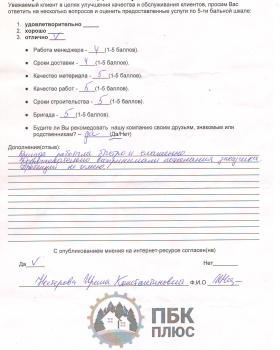 Уважаемый клиент в целях улучшения качества и обслуживания клиентов, просим Вас
ответить на несколько вопросов и оценить предоставленные услуги по 5-ти бальной шкале:
1. удовлетворительно
2. хорошо
3. отлично V
• Работа менеджера - 4 (1-5 баллов).
• Сроки доставки - 4 (1-5 баллов).
• Качество материала - 5 (1-5 баллов).
• Качество работ - 5 (1-5 баллов).
• Сроки строительства - 5 (1-5 баллов).
• Бригада - 5 (1-5 баллов).
• Будите ли Вы рекомендовать нашу компанию своим друзьям, знакомым или
родственникам? – да (Да/Нет)
Дополнения(отзыв):
Бригада работала быстро и слаженно
пожелания заказчика
Претензий не имею!
С опубликованием мнения на интернет-ресурсе согласен(на)
Да V Нет
Нестерова Ирина Константиновна Ф.И.О
ПБК
ПЛЮС